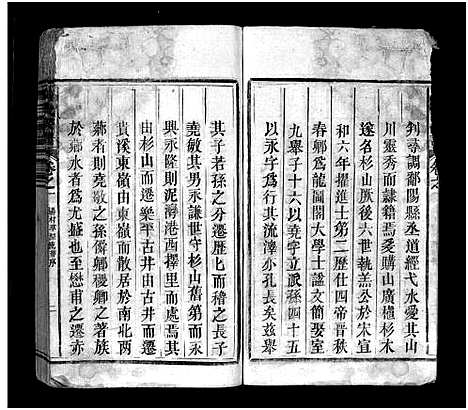 釗尋調鄱陽縣丞道經弋水愛其山
川靈秀而隸籍焉爰購山廣植杉木
遂名杉山厥後六世執羔公於宋宣
和六年擢進士第二歷仕四帝晉秩
春卿為龍圖閣大學士諡文簡娶室
九舉子十六以堯字立派孫四十五
以永字為行其流澤亦孔長矣茲舉
其子若孫之分遷歷七而稽之長子
堯敏其男永謙世守杉山舊第而永
興永隆則泥灣港西擇里而處焉其
由杉山而遷樂平古井由古井而遷
貴溪東嶺由東嶺而散居於南鄉
鄰者則堯敬之孫儕卿稷卿之著族
於鄰水者為尤盛也至懋甫之遷亦
卷之一